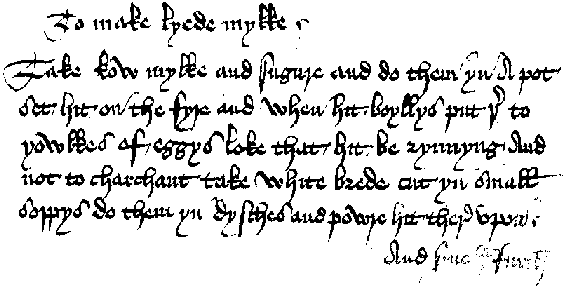 To make lyede mylke
Take kow mylke and sugure and do them yn A pot
set hit on the fyre and when hit boyllys put þ to
yowlkes of eggys loke that hit be rynnyng And
not to charchant take white brede cut yn small
soppys do them yn dysches and powre hit ther vpon
And